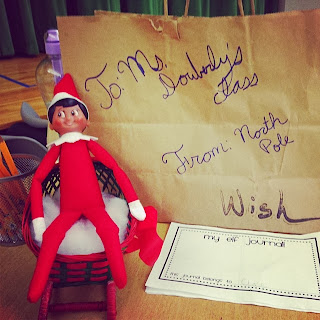 To: Ms.
Class
From: North
Pole
Wish
my elf journal!
this journal belongs to